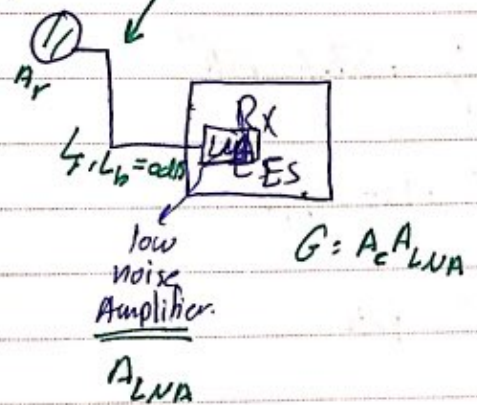 Ar
Rx
LNA
Lf, Lb = 0dB
ES
low
noise
Amplifier.
G = Ar ALNA
ALNA